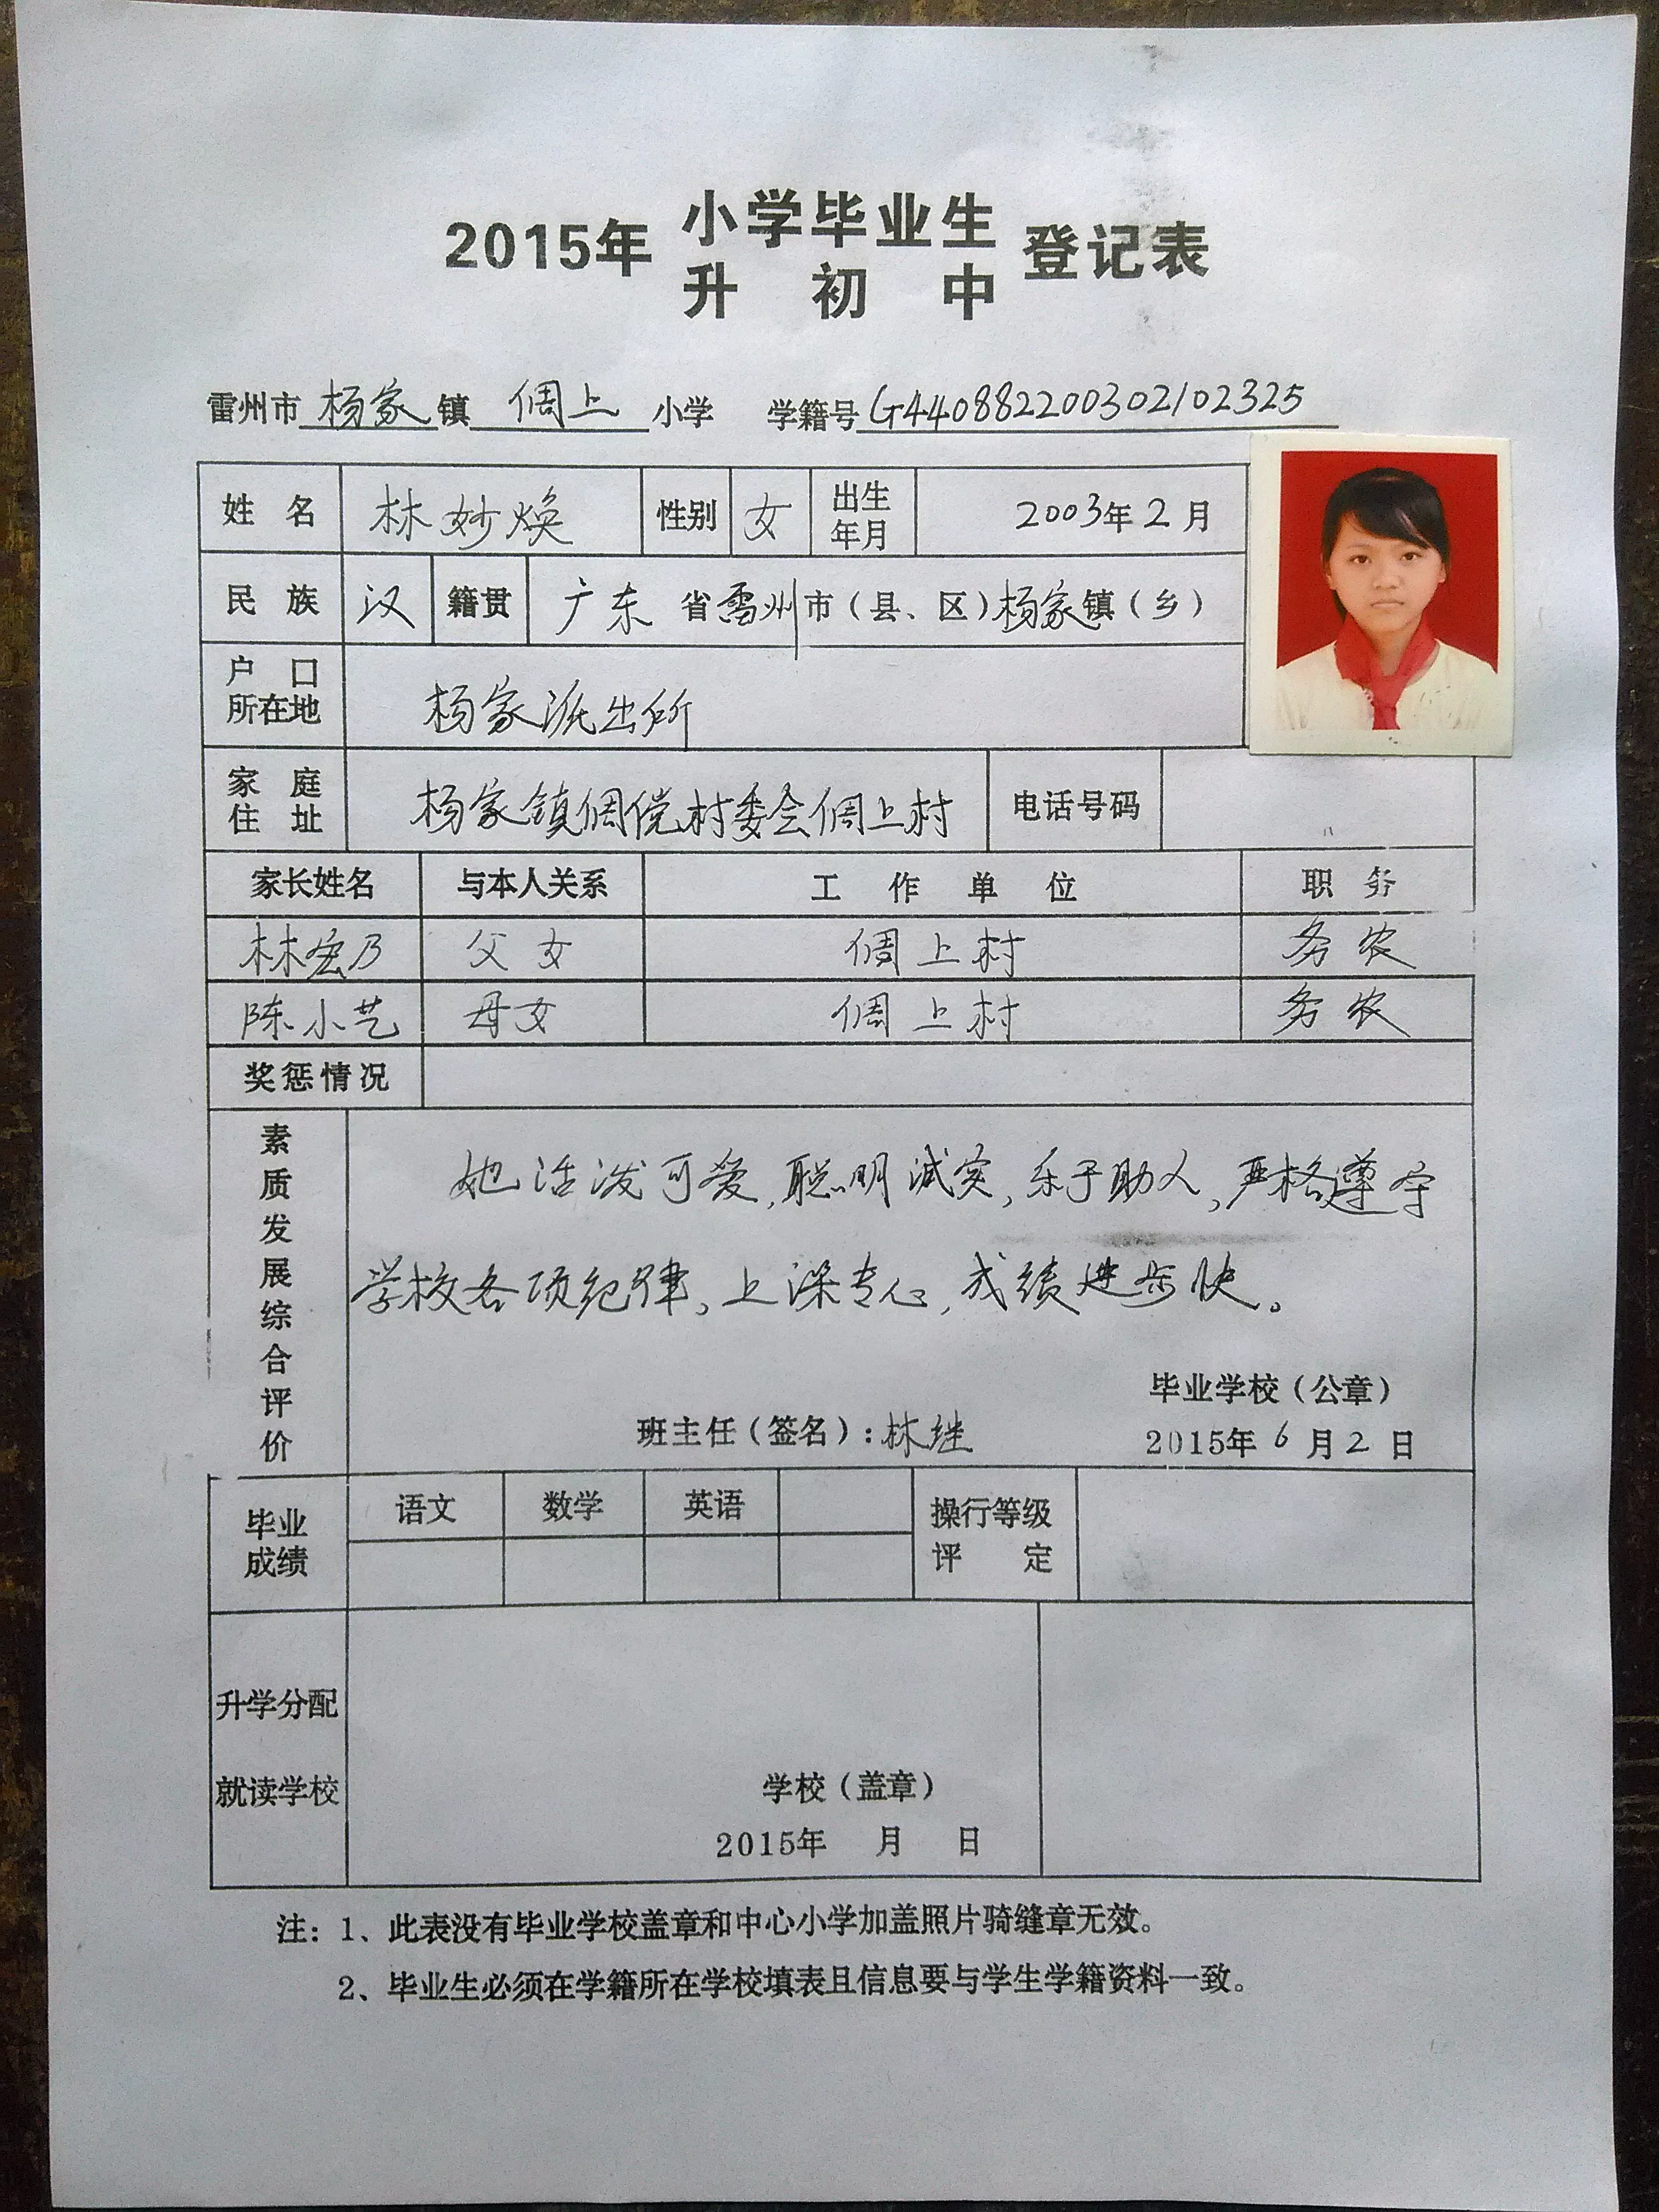 2015年 小学毕业生 登记表
升初中
雷州市杨家镇倜上小学 学籍号G440882200302102325
姓名 林妙焕 性别 女 出生年月 2003年2月
民族 汉 籍贯 广东省雷州市（县、区）杨家镇（乡）
户口所在地 杨家派出所
家庭住址 杨家镇倜傥村委会倜上村 电话号码
家长姓名 与本人关系 工作单位 职务
林宏乃 父女 倜上村 务农
陈小艺 母女 倜上村 务农
奖惩情况
素质发展综合评价
她活泼可爱,聪明诚实,乐于助人,严格遵守
学校各项纪律,上课专心,成绩进步快。
毕业学校（公章）
班主任（签名）:林继 2015年6月2日
毕业成绩 语文 数学 英语 操行等级评定
升学分配
就读学校
学校（盖章）
2015年 月 日
注：1、此表没有毕业学校盖章和中心小学加盖照片骑缝章无效。
2、毕业生必须在学籍所在学校填表且信息要与学生学籍资料一致。